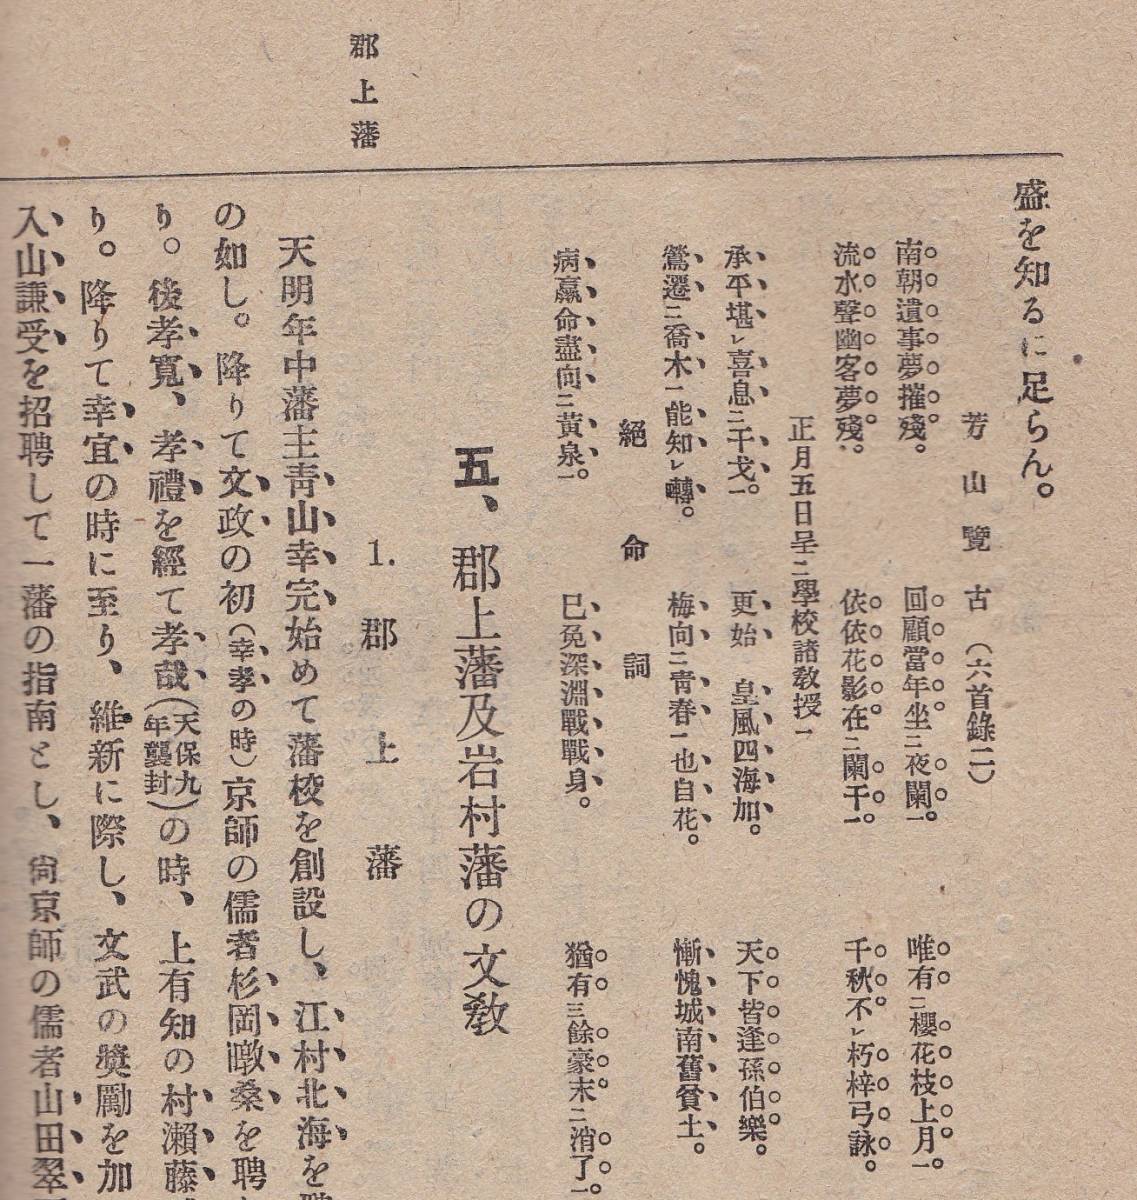 郡上藩
盛を知るに足らん。
芳山覽古（六首錄二）
南朝遺事夢摧殘。 回顧當年坐ニ夜闌一。 唯有ニ櫻花枝上月一。
流水聲幽客夢殘。 依依花影在ニ闌干一。 千秋不レ朽梓弓詠。
正月五日呈ニ學校諸敎授一
承平堪レ喜息ニ干戈一。 更始 皇風四海加。 天下皆逢孫伯樂。
鶯遷ニ喬木一能知レ囀。 梅向ニ靑春一也自花。 慚愧城南舊貧士。
絕命詞
病羸命盡向ニ黃泉一。 已免深淵戰戰身。 猶有三餘豪末ニ消了一。
五、郡上藩及岩村藩の文敎
1. 郡上藩
天明年中藩主靑山幸完始めて藩校を創設し、江村北海を聘
の如し。降りて文政の初（幸孝の時）京師の儒者杉岡暾桑を聘
り。後孝寬、孝禮を經て孝哉（天保九年襲封）の時、上有知の村瀨藤
り。降りて幸宜の時に至り、維新に際し、文武の獎勵を加
入山謙受を招聘して一藩の指南とし、尙京師の儒者山田翠